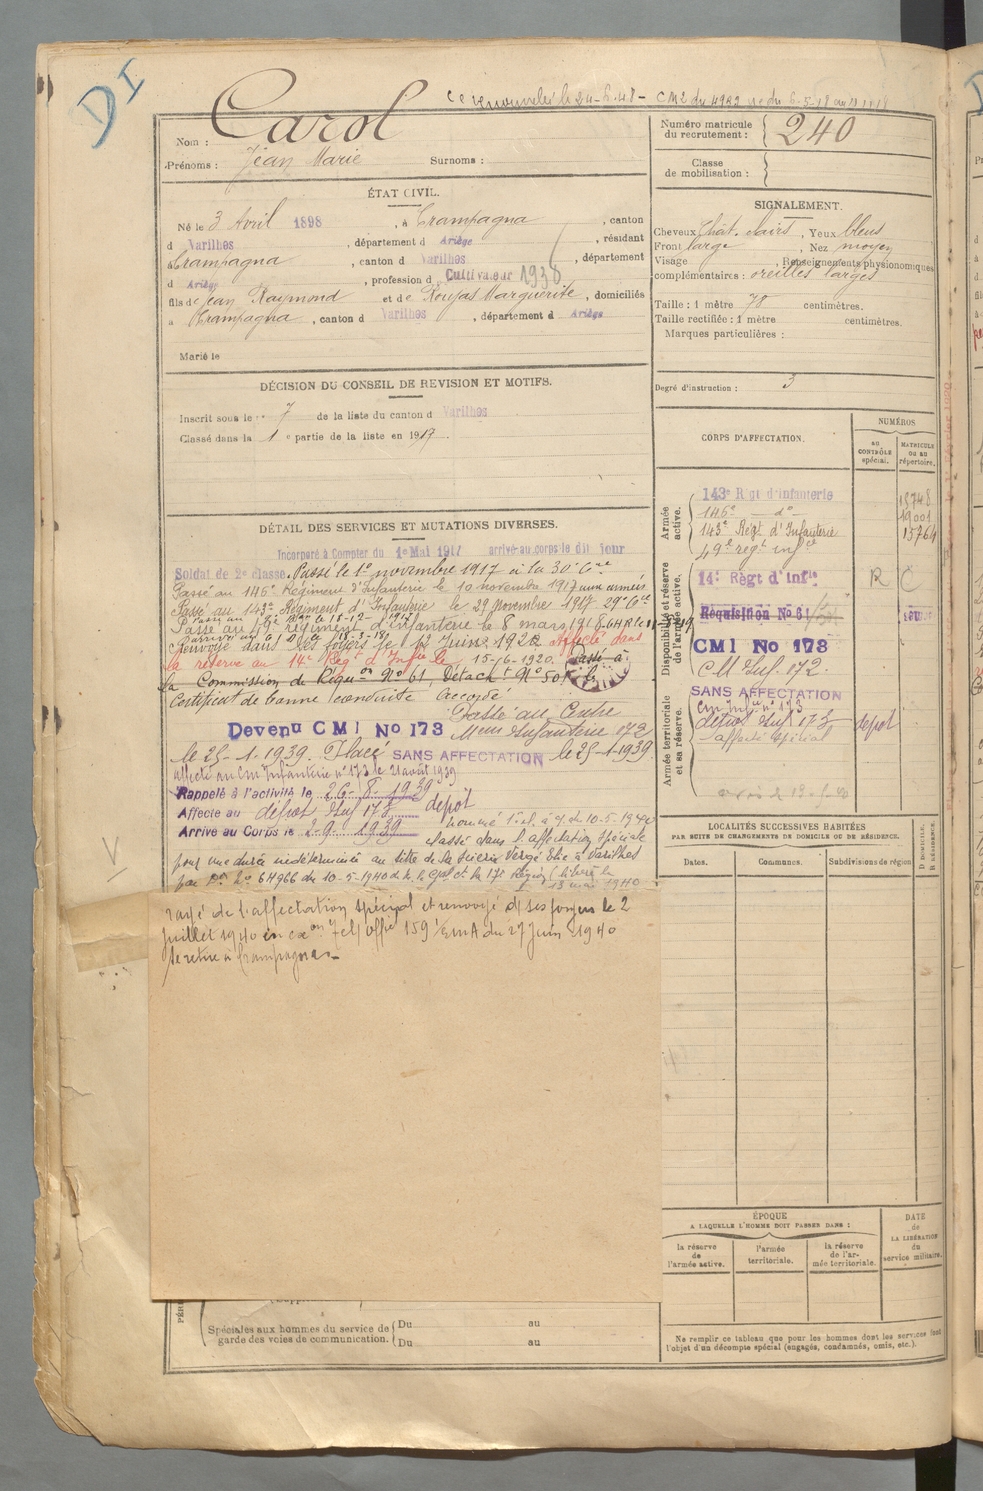 DI
Ce renouvelée le 24-2.48 - CM2 du 4982
Nom : Carol
Prénoms : Jean Marie Surnoms :
Numéro matricule du recrutement : 240
Classe de mobilisation :
ÉTAT CIVIL.
Né le 3 Avril 1898, à Crampagna, canton
d Varilhes, département d Ariège, résidant
à Crampagna, canton d Varilhes, département
d Ariège, profession d Cultivateur 1938
fils de Jean Raymond et de Roujas Marguerite, domiciliés
à Crampagna, canton d Varilhes, département d Ariège
Marié le
SIGNALEMENT.
Cheveux Chât. clairs, Yeux bleus
Front large, Nez moyen
Visage , Renseignements physionomiques
complémentaires : oreilles larges
Taille : 1 mètre 78 centimètres.
Taille rectifiée : 1 mètre centimètres.
Marques particulières :
Degré d'instruction : 3
DÉCISION DU CONSEIL DE REVISION ET MOTIFS.
Inscrit sous le n° 7 de la liste du canton d Varilhes
Classé dans la 1e partie de la liste en 1917.
DÉTAIL DES SERVICES ET MUTATIONS DIVERSES.
Incorporé à Compter du 1er Mai 1917 arrivé au corps le dit jour
Soldat de 2e classe. Passé le 1er novembre 1917 à la 30e Cie
Passé au 146e Régiment d'Infanterie le 10 novembre 1917 aux armées
Passé au 143e Régiment d'Infanterie le 29 novembre 1917 29e Cie
Passé au régiment d'infanterie le 8 mars 1918
Renvoyé dans ses foyers le 12 Juin 1920 Affecté dans
la réserve au 14e Régt d'Infie le 15-6-1920. Passé à
la Commission de Réquon No 61, Détacht No 501
Certificat de bonne conduite Accordé
Passé au Centre
Devenu CMI No 173 Mem Infanterie 172
le 25-1-1939. Placé SANS AFFECTATION le 25-1-1939.
affecté au Cm Infanterie n° 173 le 21 août 1939
Rappelé à l'activité le 26-8-1939
Affecté au dépôt Inf 173 dépôt
Arrivé au Corps le 2-9-1939
classé dans l'affectation spéciale
pour une durée indéterminée au titre de la Scierie Vergé Elie à Varilhes
par Pn No 6H966 du 10-5-1940 d. h. le Gal Ct la 17e Région (libéré le
13 mai 1940
rayé de l'affectation spécial et renvoyé d/ ses foyers le 2
Juillet 1940 en exon 159 1/EMA du 27 Juin 1940
Se retire à Crampagna.-
CORPS D'AFFECTATION.
NUMÉROS
AU CONTRÔLE spécial.
MATRICULE OU AU répertoire.
Armée active.
143e Régt d'infanterie 15748
146e - do - 19001
143e Régt d'Infanterie 15764
49e régt infie
Disponibilité et réserve de l'armée active.
14e Régt d'Infie R C
Réquisition No 61
CMI No 173
CM Inf. 172.
Armée territoriale et sa réserve.
SANS AFFECTATION
Cm Inf n° 173
dépôt Inf 173 dépôt
affecté spécial
LOCALITÉS SUCCESSIVES HABITÉES
PAR SUITE DE CHANGEMENTS DE DOMICILE OU DE RÉSIDENCE.
Dates.
Communes.
Subdivisions de région
D DOMICILE, R RÉSIDENCE.
ÉPOQUE
A LAQUELLE L'HOMME DOIT PASSER DANS :
la réserve de l'armée active.
l'armée territoriale.
la réserve de l'armée territoriale.
DATE de LA LIBÉRATION du service militaire.
Spéciales aux hommes du service de garde des voies de communication.
Du au
Du au
Ne remplir ce tableau que pour les hommes dont les services font
l'objet d'un décompte spécial (engagés, condamnés, omis, etc.).